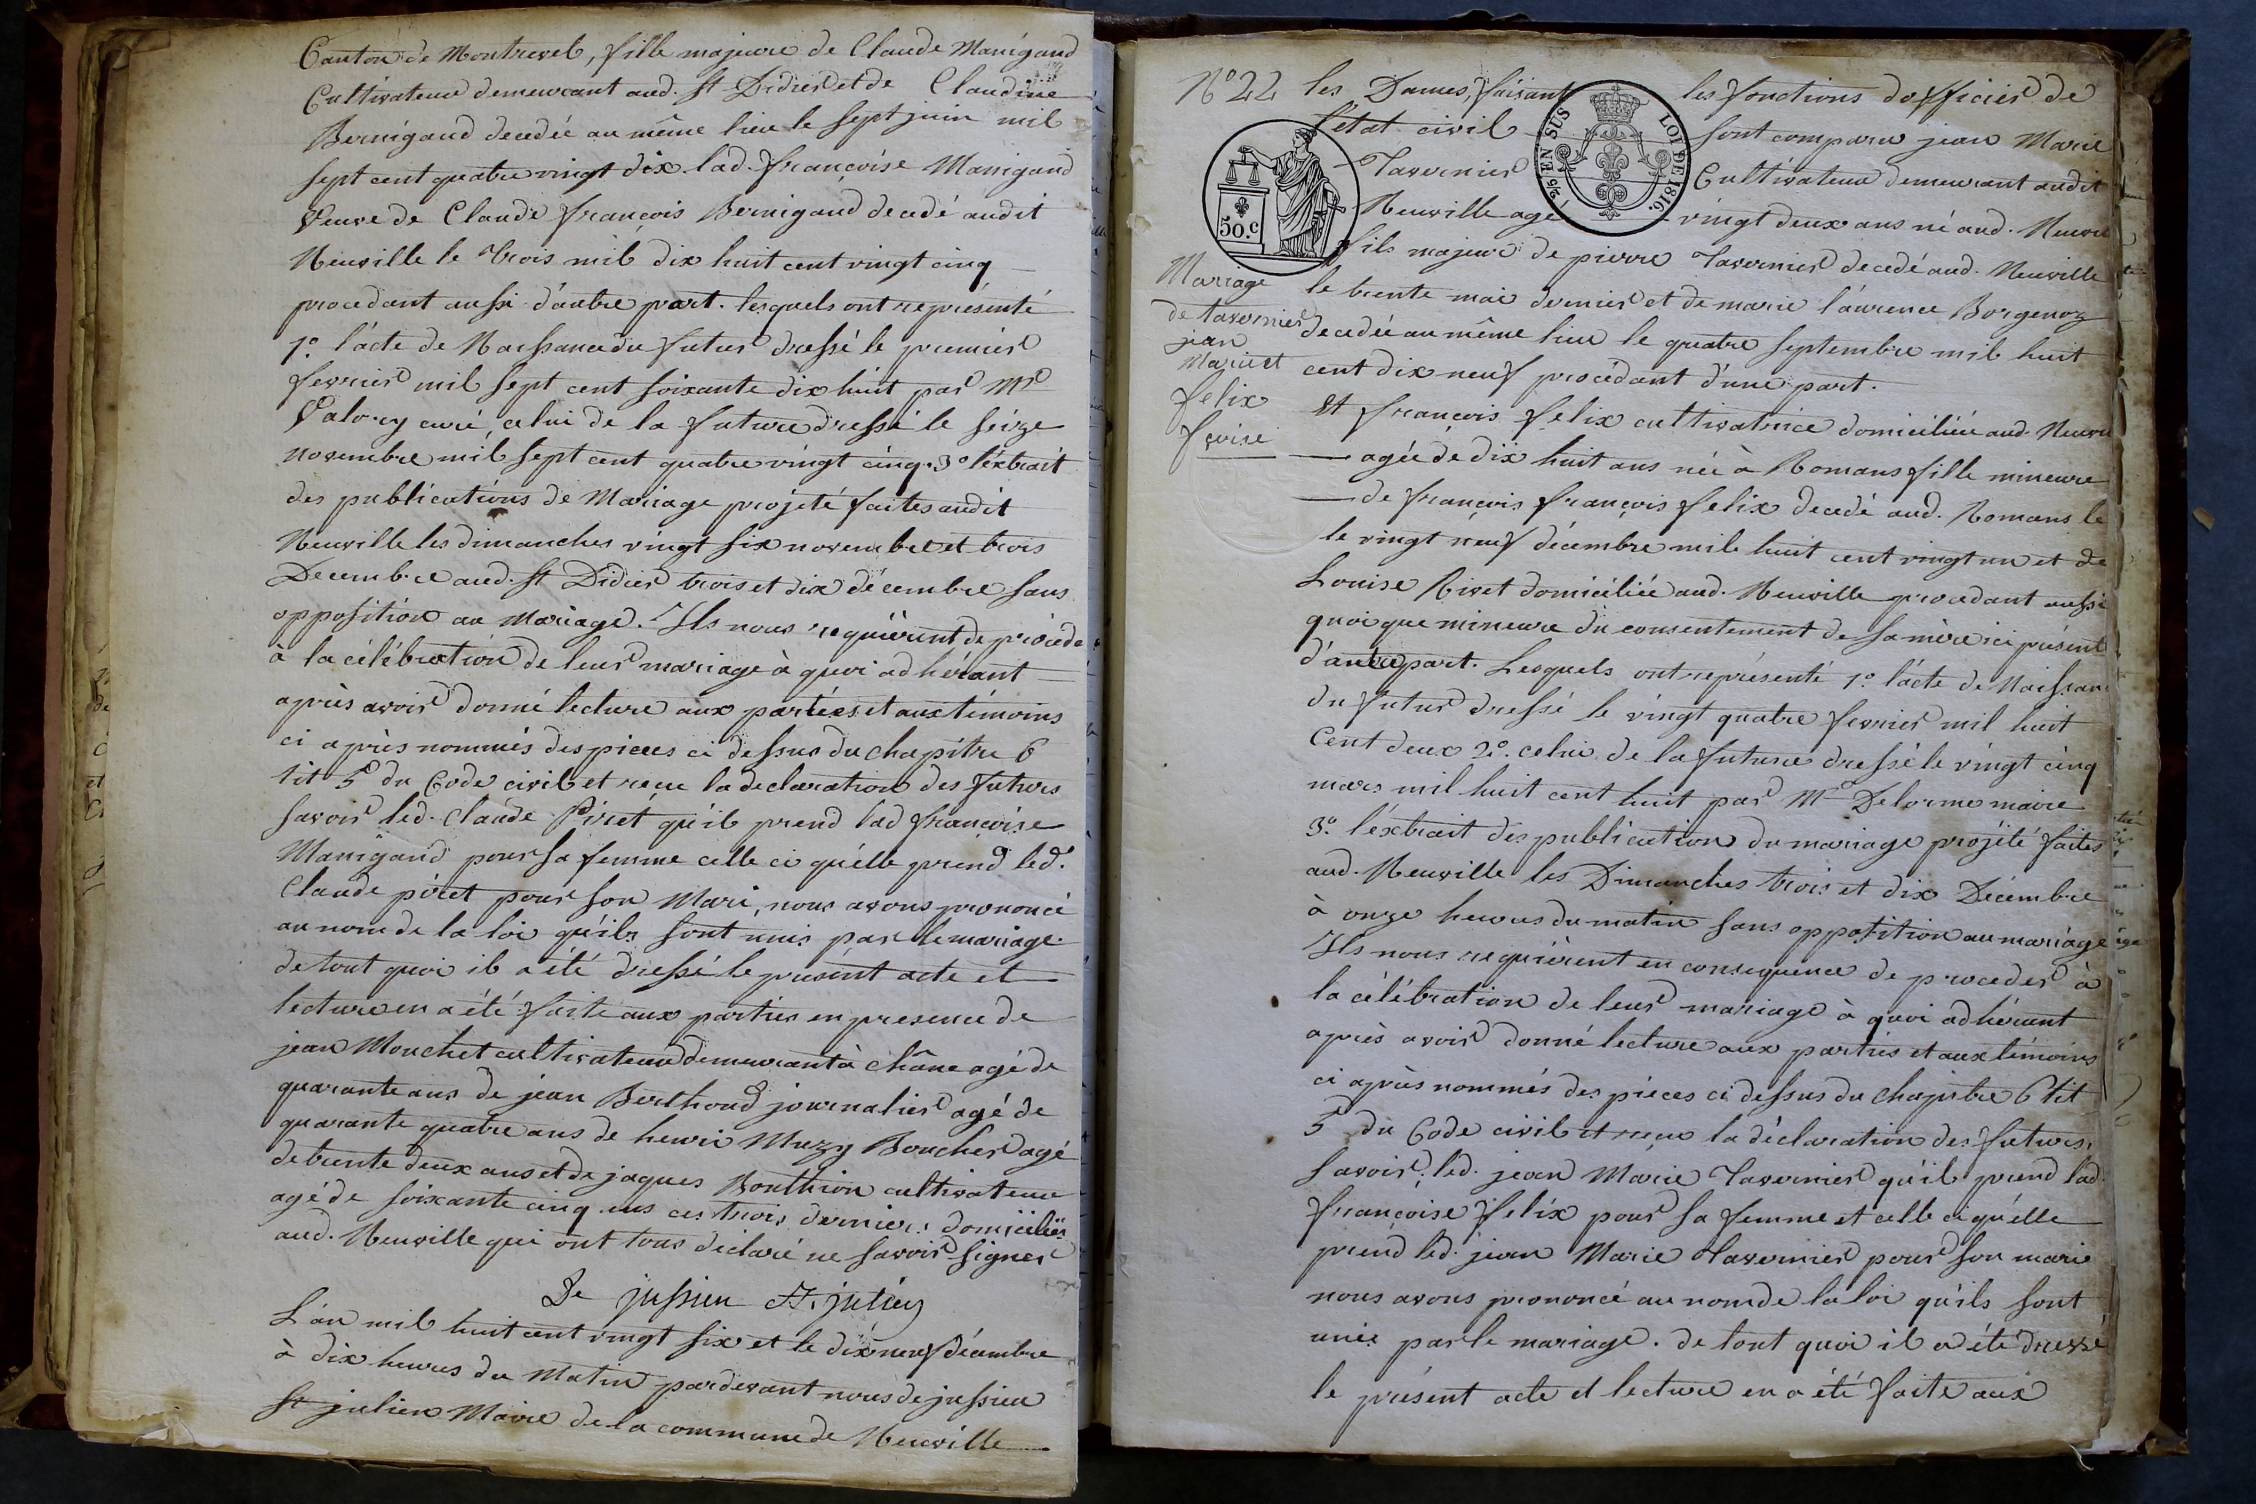 Canton de Montrevel, fille majeure de Claude Manigand
Cultivateur demeurant aud. St Didier et de Claudine
Bernigaud decedée au même lieu le sept juin mil
sept cent quatre vingt dix lad. françoise Manigand
Veuve de Claude françois Bernigaud decedé audit
Neuville le trois mil dix huit cent vingt cinq
procedant aussi d'autre part. lesquels ont représenté
1º. l'acte de Naissance du futur dressé le premier
fevrier mil sept cent soixante dix huit par Mr
curé, celui de la future dressé le seize
novembre mil sept cent quatre vingt cinq. 3º l'éxtrait
des publications de Mariage projeté faites audit
Neuville les dimanches vingt six novembre et trois
Decembre aud. St Didier trois et dix décembre sans
opposition au Mariage. Ils nous requièrent de procède
à la célébration de leur mariage à quoi adhérant
après avoir donné lecture aux parties et aux témoins
ci après nommés des pieces ci dessus du chapitre 6
tit 5 du Code civil et reçu la declaration des futurs
Savoir led. Claude Piret qu'il prend lad françoise
Manigand pour sa femme celle ci qu'elle prend led.
Claude piret pour son Mari, nous avons prononcé
au nom de la loi qu'ils sont unis par le mariage.
de tout quoi il a été dressé le présent acte et
lecture en a été faite aux parties en presence de
jean Mouchet cultivateur demeurant à Chânes agé de
quarante ans de jean Berthoud journalier agé de
quarante quatre ans de henri Muzy Boucher agé
de trente deux ans et de jaques Bonthion cultivateur
agé de soixante cinq ans ces trois derniers domiciliés
aud. Neuville qui ont tous déclaré ne savoir signer
De jussieu St. julien
L'an mil huit cent vingt six et le dix neuf décembre
à dix heures du Matin pardevant nous de jussieu
St julien Maire de la commune de Neuville
Nº 22
les Dames, faisant les fonctions d'officier de
l'état civil sont comparu jean Marie
Tavernier Cultivateur demeurant audit
Neuville agé vingt deux ans né aud. Neuvil
fils majeur de pierre Tavernier decedé aud. Neuville
le trente mai dernier et de marie laurence Borgenoz
decedée au même lieu le quatre septembre mil huit
cent dix neuf procédant d'une part.
Et françois felix cultivatrice domiciliée aud. Neuvil
agée de dix huit ans née à Romans fille mineure
de françois françois felix decedé aud. Romans le
le vingt neuf décembre mil huit cent vingt un et de
Louise Rivet domiciliée aud. Neuville procedant aussi
quoi que mineure du consentement de sa mère ici présent
d'autre part. Lesquels ont représenté 1º. l'acte de Naissan
du futur dressé le vingt quatre fevrier mil huit
Cent deux 2º. celui de la future dressé le vingt cinq
mars mil huit cent huit par Mr Delorme maire
3º. l'éxtrait des publication du mariage projété faites
aud. Neuville les Dimanches trois et dix Décembre
à onze heures du matin sans opposition au mariage
Ils nous requièrent en consequence de proceder à
la célébration de leur mariage à quoi adhérant
après avoir donné lecture aux parties et aux témoins
ci après nommés des pièces ci dessus du chapitre 6 tit
5 du Code civil et reçu la déclaration des futurs,
Savoir; led. jean Marie Tavernier qu'il prend lad.
françoise felix pour sa femme et celle ci qu'elle
prend led. jean Marie Tavernier pour son mari
nous avons prononcé au nom de la loi qu'ils sont
unis par le mariage. de tout quoi il a été dressé
le présent acte et lecture en a été faite aux
Mariage
de tavernier
jean
Marie et
felix
fçoise
50.c
EN SUS
LOI DE 1816.